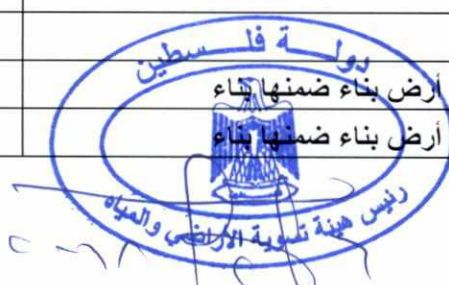 دولة فلسطين
أرض بناء ضمنها بناء
أرض بناء ضمنها بناء
رئيس هيئة تسوية الأراضي والمياه